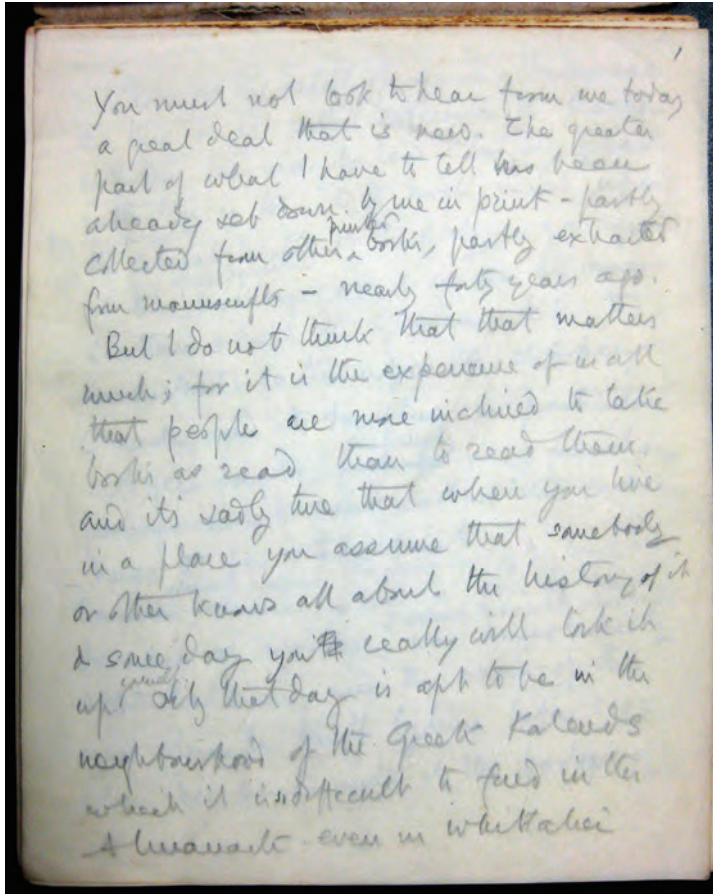 1
You must not look to hear from me today
a great deal that is new. The greater
part of what I have to tell has been
already set down by me in print - partly
collected from other printed books, partly extracted
from manuscripts - nearly forty years ago.
But I do not think that that matters
much; for it is the experience of us all
that people are more inclined to take
books as read than to read them
and its sadly true that when you live
in a place you assume that somebody
or other knows all about the history of it
& some day you really will look it
up. Only that day is apt to be in the
neighbourhood of the Greek Kalends
which it is difficult to find in the
Almanack even in Whittaker